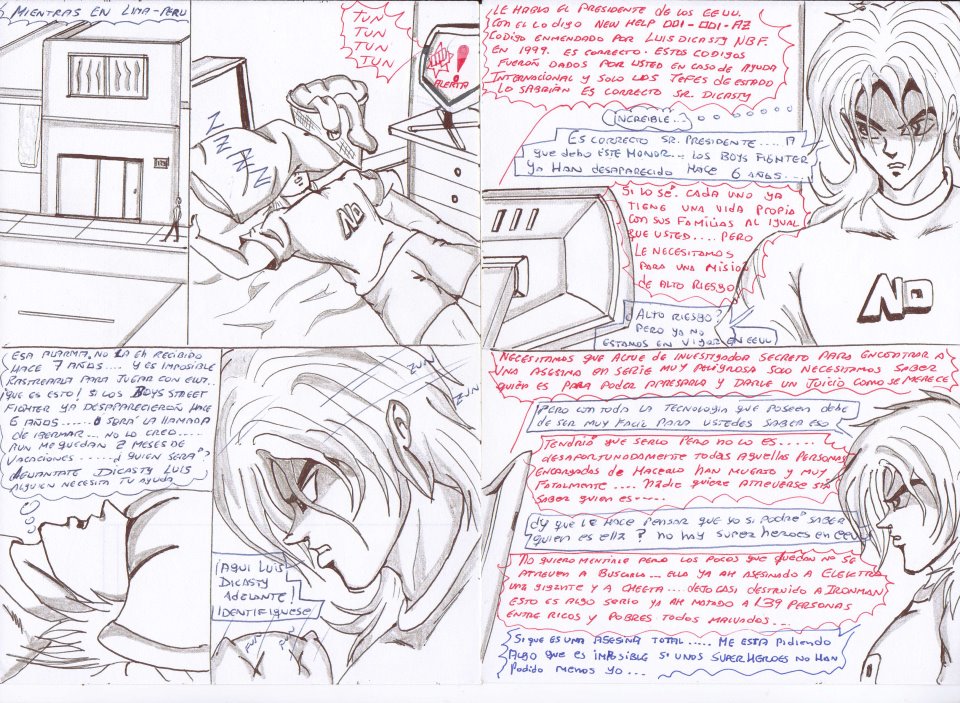 MIENTRAS EN LIMA-PERU
TUN
TUN
TUN
TUN
ALERTA
ZZZZZ
NO
LE HABLA EL PRESIDENTE DE LOS EEUU.
CON EL CODIGO NEW HELP 001-001-AZ
CODIGO ENMENDADO POR LUIS DICASTY NBF.
EN 1999. ES CORRECTO. ESTOS CODIGOS
FUERON DADOS POR USTED EN CASO DE AYUDA
INTERNACIONAL Y SOLO LOS JEFES DE ESTADO
LO SABRIAN ES CORRECTO SR. DICASTY
¡INCREIBLE..!
ES CORRECTO SR. PRESIDENTE.... A
QUE DEBO ESTE HONOR... LOS BOYS FIGHTER
YA HAN DESAPARECIDO HACE 6 AÑOS....
SI LO SÉ. CADA UNO YA
TIENE UNA VIDA PROPIA
CON SUS FAMILIAS AL IGUAL
QUE USTED.... PERO
LE NECESITAMOS
PARA UNA MISION
DE ALTO RIESGO
¿ALTO RIESGO?
PERO YA NO
ESTAMOS EN VIGOR EN EEUU
NO
ESA ALARMA. NO LA EH RECIBIDO
HACE 7 AÑOS.... Y ES IMPOSIBLE
RASTREARLA PARA JUGAR CON ELLA.
¡QUE ES ESTO! SI LOS BOYS STREET
FIGHTER YA DESAPARECIERON HACE
6 AÑOS...... O SERÁ LA LLAMADA
DE... NO LO CREO....
AUN ME QUEDAN 2 MESES DE
VACACIONES ..... ¿QUIEN SERÁ?
LEVANTATE DICASTY LUIS
ALGUIEN NECESITA TU AYUDA
ZUN
ZUN
¡AQUI LUIS
DICASTY
ADELANTE!
IDENTIFIQUESE
NECESITAMOS QUE ACTUE DE INVESTIGADOR SECRETO PARA ENCONTRAR A
UNA ASESINA EN SERIE MUY PELIGROSA SOLO NECESITAMOS SABER
QUIÉN ES PARA PODER APRESARLA Y DARLE UN JUICIO COMO SE MERECE
PERO CON TODA LA TECNOLOGIA QUE POSEEN DEBE
DE SER MUY FACIL PARA USTEDES SABER ESO
TENDRIA QUE SERLO PERO NO LO ES......
DESAFORTUNADAMENTE TODAS AQUELLAS PERSONAS
ENCARGADAS DE HACERLO HAN MUERTO Y MUY
FATALMENTE .... NADIE QUIERE ATREVERSE SIN
SABER QUIEN ES....
¿Y QUE LE HACE PENSAR QUE YO SI PODRÉ SABER
QUIEN ES ELLA? NO HAY SUPER HEROES EN EEUU
NO QUIERO MENTIRLE PERO LOS POCOS QUE QUEDAN NO SE
ATREVEN A BUSCARLA... ELLA YA AH ASESINADO A ELEKTRA
UNA GIGANTE Y A CHEETA .... DEJO CASI DESTRUIDO A IRONMAN
ESTO ES ALGO SERIO YA AH MATADO A 139 PERSONAS
ENTRE RICOS Y POBRES TODOS MALVADOS...
SI QUE ES UNA ASESINA TOTAL..... ME ESTA PIDIENDO
ALGO QUE ES IMPOSIBLE SI UNOS SUPER HEROES NO HAN
PODIDO MENOS YO...